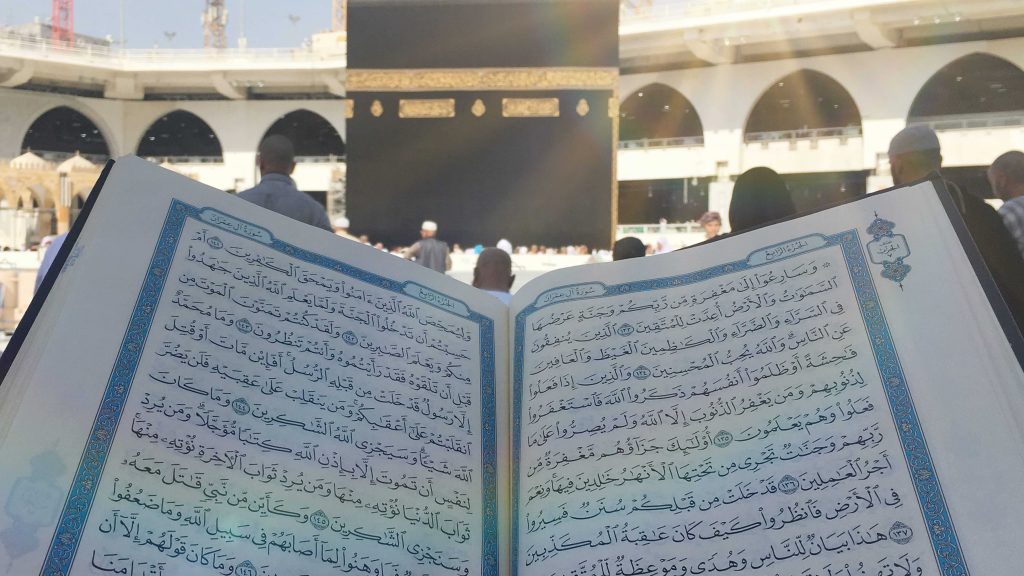 الجُزْءُ الرَّابِعُ
سُورَةُ آلِ عِمْرَانَ
۞ وَسَارِعُوٓاْ إِلَىٰ مَغْفِرَةٍ مِّن رَّبِّكُمْ وَجَنَّةٍ عَرْضُهَا
ٱلسَّمَٰوَٰتُ وَٱلْأَرْضُ أُعِدَّتْ لِلْمُتَّقِينَ ١٣٣ ٱلَّذِينَ يُنفِقُونَ
فِى ٱلسَّرَّآءِ وَٱلضَّرَّآءِ وَٱلْكَٰظِمِينَ ٱلْغَيْظَ وَٱلْعَافِينَ
عَنِ ٱلنَّاسِ وَٱللَّهُ يُحِبُّ ٱلْمُحْسِنِينَ ١٣٤ وَٱلَّذِينَ إِذَا فَعَلُواْ
فَٰحِشَةً أَوْ ظَلَمُوٓاْ أَنفُسَهُمْ ذَكَرُواْ ٱللَّهَ فَٱسْتَغْفَرُواْ
لِذُنُوبِهِمْ وَمَن يَغْفِرُ ٱلذُّنُوبَ إِلَّا ٱللَّهُ وَلَمْ يُصِرُّواْ عَلَىٰ مَا
فَعَلُواْ وَهُمْ يَعْلَمُونَ ١٣٥ أُوْلَٰٓئِكَ جَزَآؤُهُم مَّغْفِرَةٌ مِّن
رَّبِّهِمْ وَجَنَّٰتٌ تَجْرِى مِن تَحْتِهَا ٱلْأَنْهَٰرُ خَٰلِدِينَ فِيهَا وَنِعْمَ
أَجْرُ ٱلْعَٰمِلِينَ ١٣٦ قَدْ خَلَتْ مِن قَبْلِكُمْ سُنَنٌ فَسِيرُواْ
فِى ٱلْأَرْضِ فَٱنظُرُواْ كَيْفَ كَانَ عَٰقِبَةُ ٱلْمُكَذِّبِينَ
١٣٧ هَٰذَا بَيَانٌ لِّلنَّاسِ وَهُدًى وَمَوْعِظَةٌ
الجُزْءُ الرَّابِعُ
سُورَةُ آلِ عِمْرَانَ
وَلِيُمَحِّصَ ٱللَّهُ ٱلَّذِينَ ءَامَنُواْ وَيَمْحَقَ ٱلْكَٰفِرِينَ ١٤١ أَمْ
حَسِبْتُمْ أَن تَدْخُلُواْ ٱلْجَنَّةَ وَلَمَّا يَعْلَمِ ٱللَّهُ ٱلَّذِينَ جَٰهَدُواْ
مِنكُمْ وَيَعْلَمَ ٱلصَّٰبِرِينَ ١٤٢ وَلَقَدْ كُنتُمْ تَمَنَّوْنَ ٱلْمَوْتَ مِن
قَبْلِ أَن تَلْقَوْهُ فَقَدْ رَأَيْتُمُوهُ وَأَنتُمْ تَنظُرُونَ ١٤٣ وَمَا مُحَمَّدٌ
إِلَّا رَسُولٌ قَدْ خَلَتْ مِن قَبْلِهِ ٱلرُّسُلُ أَفَإِيْن مَّاتَ أَوْ قُتِلَ
ٱنقَلَبْتُمْ عَلَىٰٓ أَعْقَٰبِكُمْ وَمَن يَنقَلِبْ عَلَىٰ عَقِبَيْهِ فَلَن يَضُرَّ
ٱللَّهَ شَيْـًٔا وَسَيَجْزِى ٱللَّهُ ٱلشَّٰكِرِينَ ١٤٤ وَمَا كَانَ
لِنَفْسٍ أَن تَمُوتَ إِلَّا بِإِذْنِ ٱللَّهِ كِتَٰبًا مُّؤَجَّلًا وَمَن يُرِدْ
ثَوَابَ ٱلدُّنْيَا نُؤْتِهِۦ مِنْهَا وَمَن يُرِدْ ثَوَابَ ٱلْأَخِرَةِ نُؤْتِهِۦ مِنْهَا
وَسَنَجْزِى ٱلشَّٰكِرِينَ ١٤٥ وَكَأَيِّن مِّن نَّبِىٍّ قَٰتَلَ مَعَهُۥ
وَهَنُواْ لِمَآ أَصَابَهُمْ فِى سَبِيلِ ٱللَّهِ وَمَا ضَعُفُواْ
١٤٦ وَمَا كَانَ قَوْلَهُمْ إِلَّآ أَن